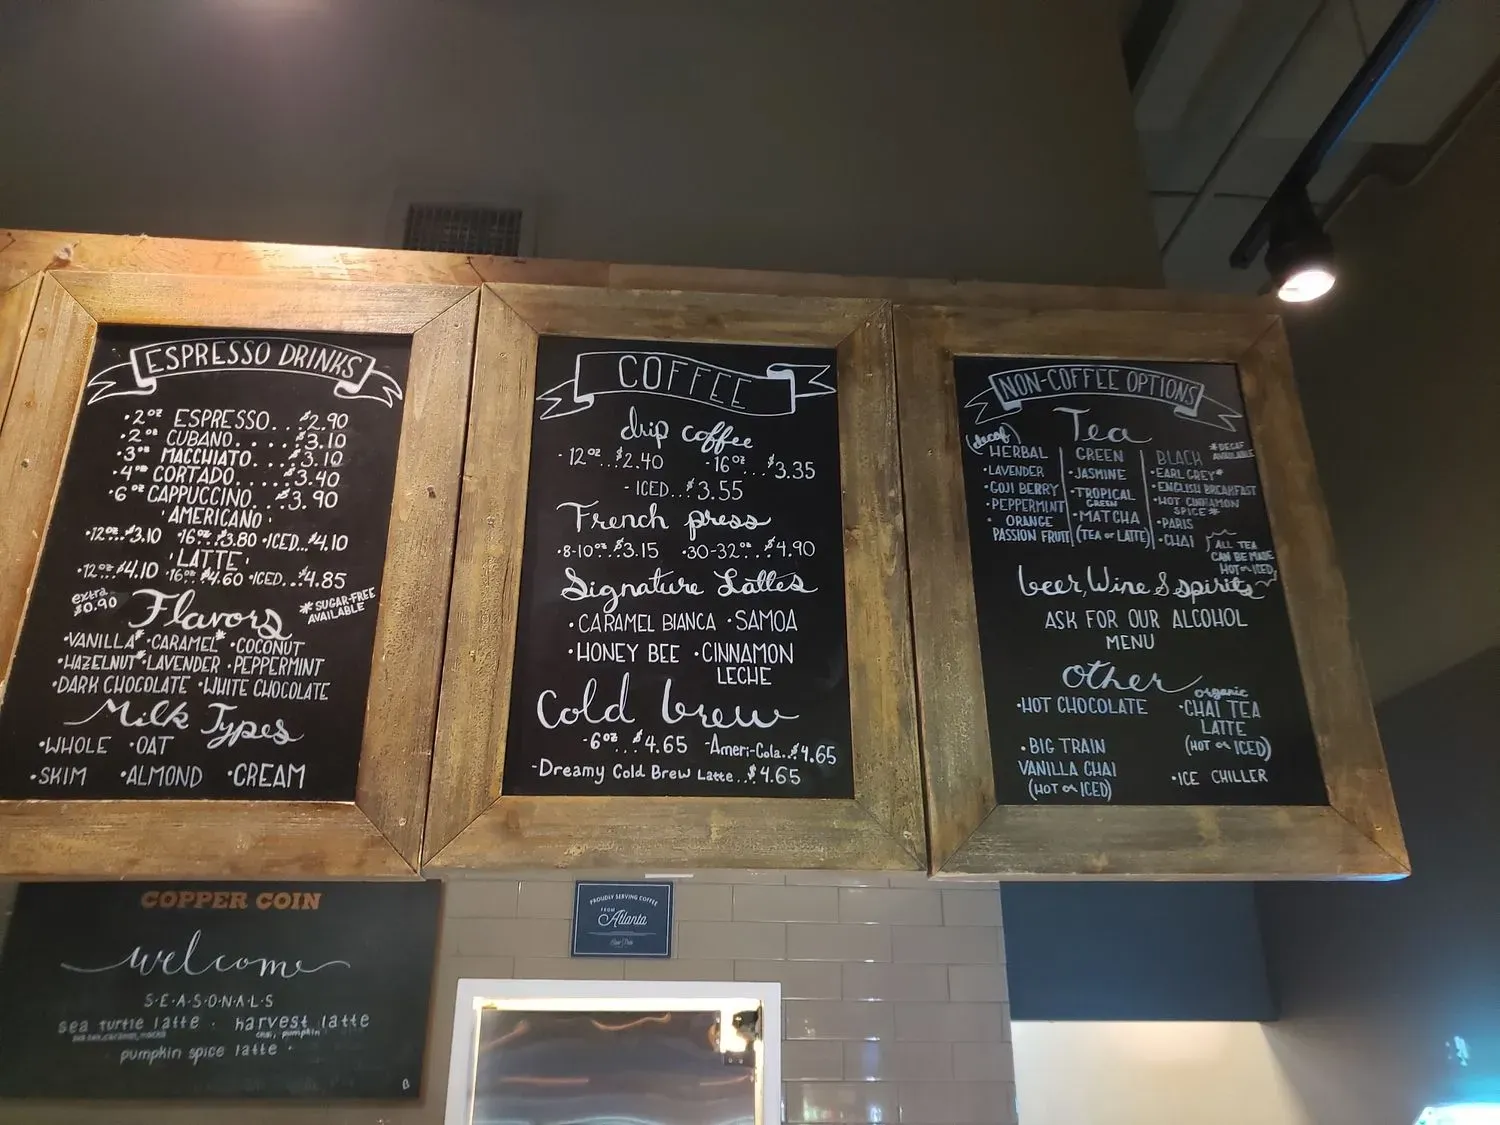 ESPRESSO DRINKS
• 2oz ESPRESSO...$2.90
• 2oz CUBANO.....$3.10
• 3oz MACCHIATO...$3.10
• 4oz CORTADO.....$3.40
• 6oz CAPPUCCINO...$3.90
AMERICANO
• 12oz..$3.10 • 16oz..$3.80 • ICED...$4.10
LATTE
• 12oz..$4.10 • 16oz..$4.60 • ICED...$4.85
extra
$0.90
Flavors
* SUGAR-FREE
AVAILABLE
• VANILLA* • CARAMEL* • COCONUT
• HAZELNUT* • LAVENDER • PEPPERMINT
• DARK CHOCOLATE • WHITE CHOCOLATE
Milk Types
• WHOLE • OAT
• SKIM • ALMOND • CREAM
COFFEE
drip coffee
- 12oz...$2.40 - 16oz...$3.35
- ICED...$3.55
French press
• 8-10oz..$3.15 • 30-32oz..$4.90
Signature Lattes
• CARAMEL BIANCA • SAMOA
• HONEY BEE • CINNAMON
LECHE
Cold brew
- 6oz...$4.65 - Ameri-Cola...$4.65
- Dreamy Cold Brew Latte...$4.65
NON-COFFEE OPTIONS
Tea
(decaf)
HERBAL
• LAVENDER
• GOJI BERRY
• PEPPERMINT
• ORANGE
PASSION FRUIT
GREEN
• JASMINE
• TROPICAL
GREEN
• MATCHA
(TEA or LATTE)
* DECAF
AVAILABLE
BLACK
• EARL GREY*
• ENGLISH BREAKFAST
• HOT CINNAMON
SPICE*
• PARIS
• CHAI
ALL TEA
CAN BE MADE
HOT or ICED
beer, Wine & spirits
ASK FOR OUR ALCOHOL
MENU
other
• HOT CHOCOLATE
• BIG TRAIN
VANILLA CHAI
(HOT or ICED)
organic
• CHAI TEA
LATTE
(HOT or ICED)
• ICE CHILLER
COPPER COIN
welcome
S·E·A·S·O·N·A·L·S
sea turtle latte · harvest latte
chai, pumpkin
pumpkin spice latte ·
B
PROUDLY SERVING COFFEE
FROM
Atlanta